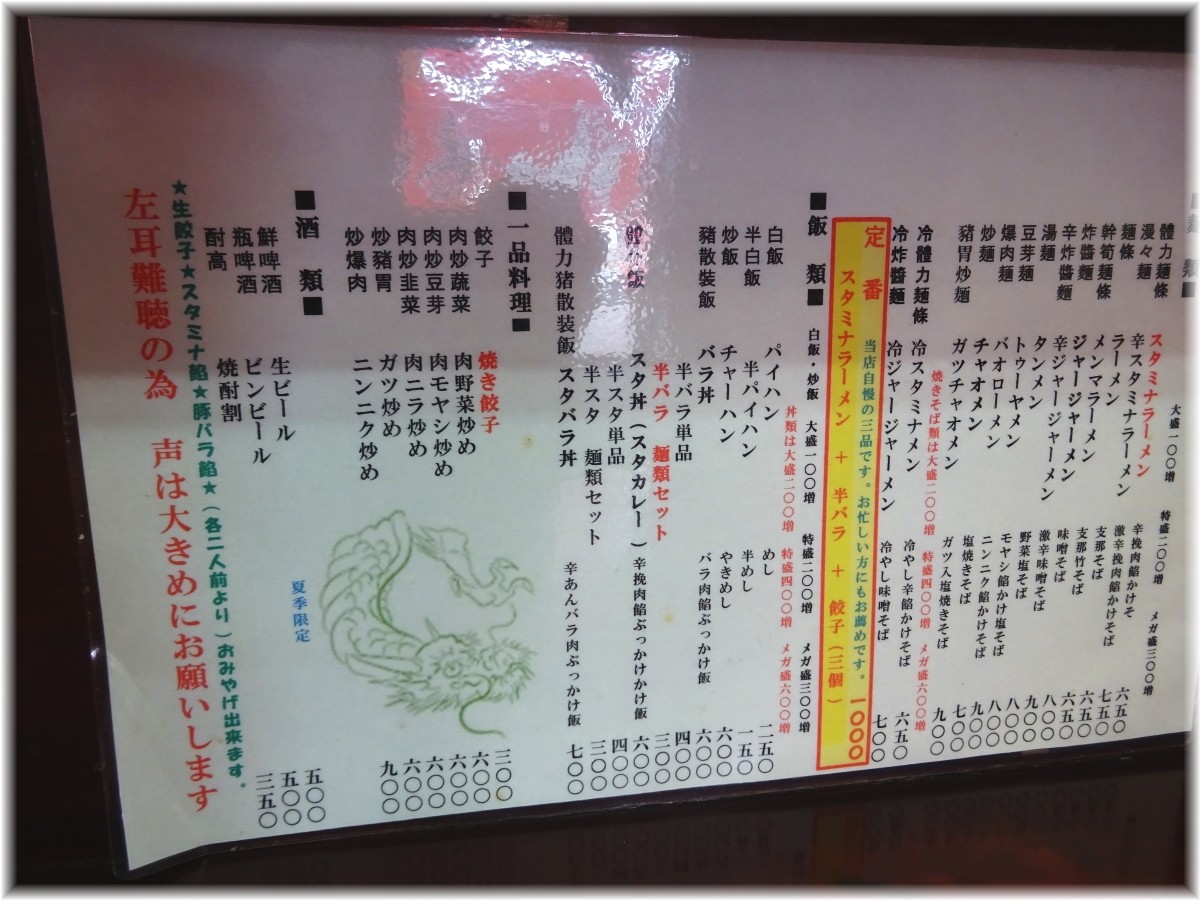 類■
大盛一〇〇増 特盛二〇〇増 メガ盛三〇〇増
體力麵條 スタミナラーメン 辛挽肉餡かけそ 六五〇
漫々麵 辛スタミナラーメン 激辛挽肉餡かけそば 七五〇
麵條 ラーメン 支那そば 六五〇
幹筍麵條 メンマラーメン 支那竹そば 六五〇
炸醬麵 ジャージャーメン 味噌そば 八〇〇
辛炸醬麵 辛ジャージャーメン 激辛味噌そば 九〇〇
湯麵 タンメン 野菜塩そば 八〇〇
豆芽麵 トゥーヤメン モヤシ餡かけ塩そば 八〇〇
爆肉麵 バオローメン ニンニク餡かけそば 九〇〇
炒麵 チャオメン 塩焼きそば 七〇〇
豬胃炒麵 ガツチャオメン ガツ入塩焼きそば 九〇〇
焼きそば類は大盛二〇〇増 特盛四〇〇増 メガ盛六〇〇増
冷體力麵條 冷スタミナメン 冷やし辛餡かけそば 六五〇
冷炸醬麵 冷ジャージャーメン 冷やし味噌そば 七〇〇
当店自慢の三品です。お忙しい方にもお薦めです。
定番 スタミナラーメン + 半バラ + 餃子(三個) 一〇〇〇
■飯 類■ 白飯・炒飯 大盛一〇〇増 特盛二〇〇増 メガ盛三〇〇増
丼類は大盛二〇〇増 特盛四〇〇増 メガ盛六〇〇増
白飯 パイハン めし 二五〇
半白飯 半パイハン 半めし 一五〇
炒飯 チャーハン やきめし 六〇〇
豬散裝飯 バラ丼 バラ肉餡ぶっかけ飯 六〇〇
半バラ単品 四〇〇
半バラ 麺類セット 三〇〇
體力飯 スタ丼(スタカレー) 辛挽肉餡ぶっかけかけ飯 六〇〇
半スタ単品 四〇〇
半スタ 麺類セット 三〇〇
體力猪散装飯 スタバラ丼 辛あんバラ肉ぶっかけ飯 七〇〇
■一品料理■
餃子 焼き餃子 三〇〇
肉炒蔬菜 肉野菜炒め 六〇〇
肉炒豆芽 肉モヤシ炒め 六〇〇
肉炒韭菜 肉ニラ炒め 六〇〇
炒豬胃 ガツ炒め 六〇〇
炒爆肉 ニンニク炒め 九〇〇
■酒 類■
夏季限定
鮮啤酒 生ビール 五〇〇
瓶啤酒 ビンビール 五〇〇
酎高 焼酎割 三五〇
★生餃子★スタミナ餡★豚バラ餡★(各二人前より)おみやげ出来ます。
左耳難聴の為 声は大きめにお願いします